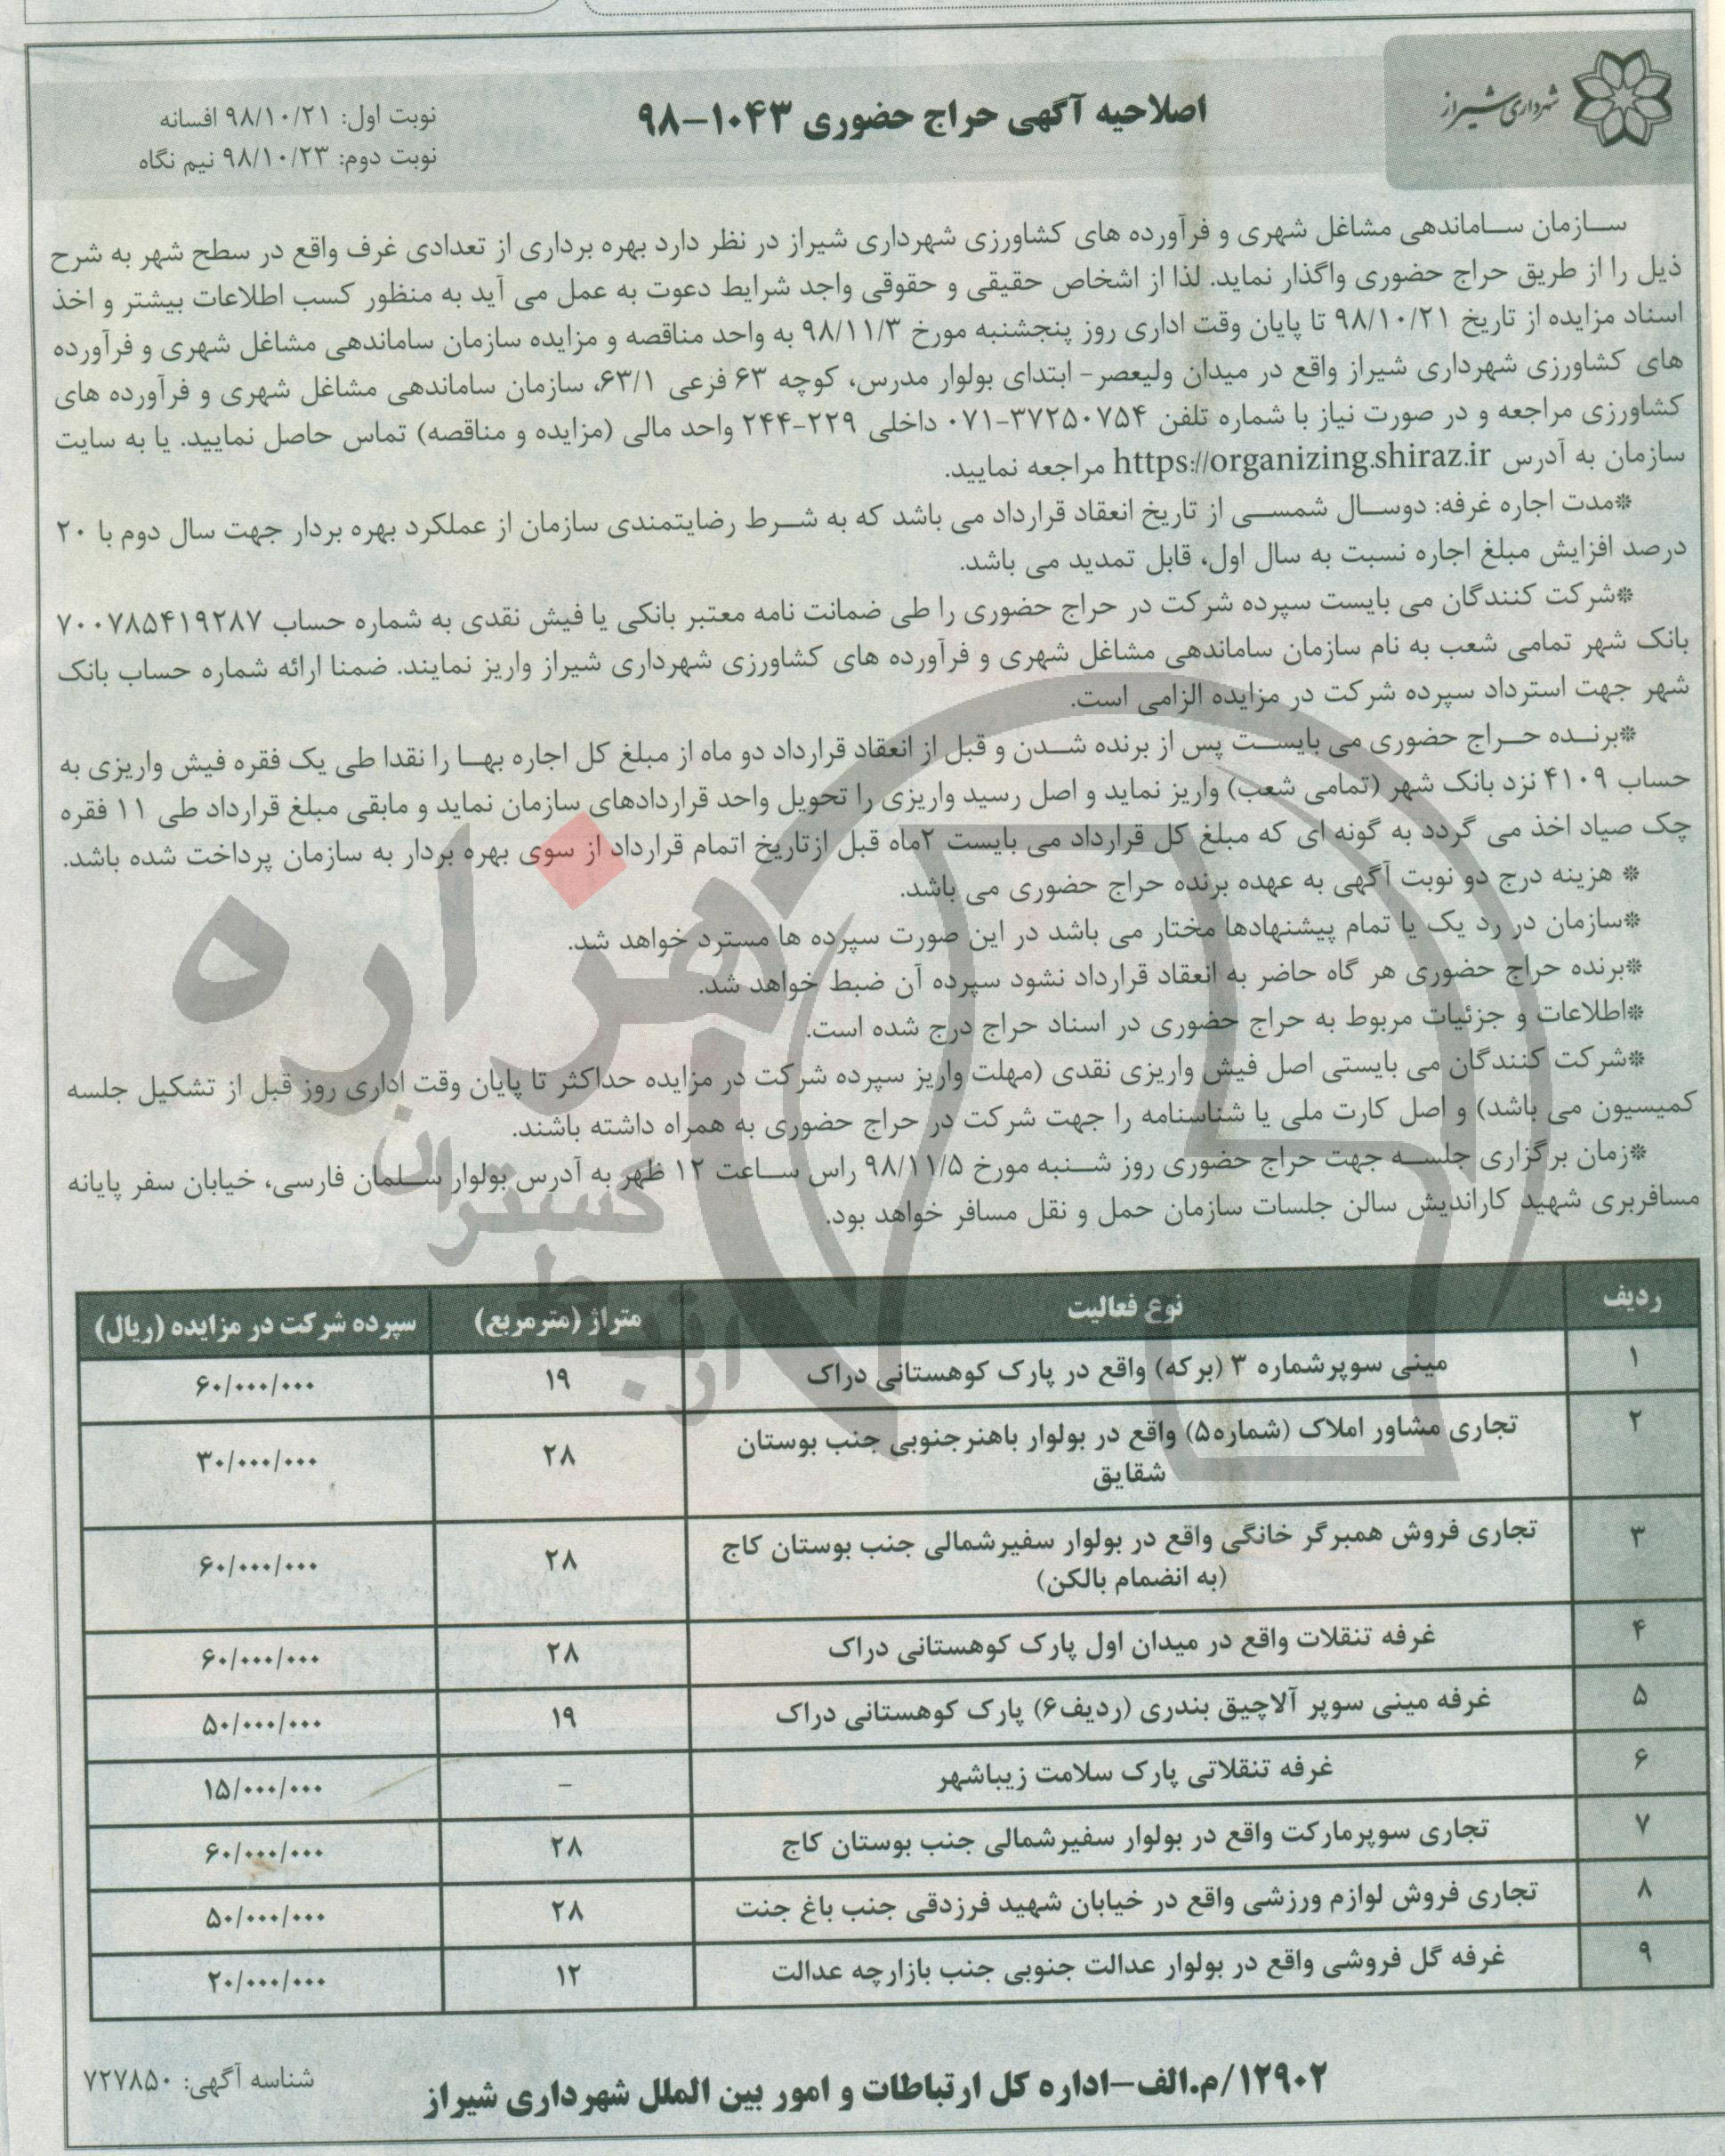 شهرداری شیراز
اصلاحیه آگهی حراج حضوری ۱۰۴۳-۹۸
نوبت اول: ۹۸/۱۰/۲۱ افسانه
نوبت دوم: ۹۸/۱۰/۲۳ نیم نگاه
سازمان ساماندهی مشاغل شهری و فرآورده های کشاورزی شهرداری شیراز در نظر دارد بهره برداری از تعدادی غرف واقع در سطح شهر به شرح
ذیل را از طریق حراج حضوری واگذار نماید. لذا از اشخاص حقیقی و حقوقی واجد شرایط دعوت به عمل می آید به منظور کسب اطلاعات بیشتر و اخذ
اسناد مزایده از تاریخ ۹۸/۱۰/۲۱ تا پایان وقت اداری روز پنجشنبه مورخ ۹۸/۱۱/۳ به واحد مناقصه و مزایده سازمان ساماندهی مشاغل شهری و فرآورده
های کشاورزی شهرداری شیراز واقع در میدان ولیعصر- ابتدای بولوار مدرس، کوچه ۶۳ فرعی ۶۳/۱، سازمان ساماندهی مشاغل شهری و فرآورده های
کشاورزی مراجعه و در صورت نیاز با شماره تلفن ۳۷۲۵۰۷۵۴-۰۷۱ داخلی ۲۲۹-۲۴۴ واحد مالی (مزایده و مناقصه) تماس حاصل نمایید. یا به سایت
سازمان به آدرس https://organizing.shiraz.ir مراجعه نمایید.
*مدت اجاره غرفه: دوسال شمسی از تاریخ انعقاد قرارداد می باشد که به شرط رضایتمندی سازمان از عملکرد بهره بردار جهت سال دوم با ۲۰
درصد افزایش مبلغ اجاره نسبت به سال اول، قابل تمدید می باشد.
*شرکت کنندگان می بایست سپرده شرکت در حراج حضوری را طی ضمانت نامه معتبر بانکی یا فیش نقدی به شماره حساب ۷۰۰۷۸۵۴۱۹۲۸۷
بانک شهر تمامی شعب به نام سازمان ساماندهی مشاغل شهری و فرآورده های کشاورزی شهرداری شیراز واریز نمایند. ضمنا ارائه شماره حساب بانک
شهر جهت استرداد سپرده شرکت در مزایده الزامی است.
*برنده حراج حضوری می بایست پس از برنده شدن و قبل از انعقاد قرارداد دو ماه از مبلغ کل اجاره بها را نقدا طی یک فقره فیش واریزی به
حساب ۴۱۰۹ نزد بانک شهر (تمامی شعب) واریز نماید و اصل رسید واریزی را تحویل واحد قراردادهای سازمان نماید و مابقی مبلغ قرارداد طی ۱۱ فقره
چک صیاد اخذ می گردد به گونه ای که مبلغ کل قرارداد می بایست ۲ماه قبل ازتاریخ اتمام قرارداد از سوی بهره بردار به سازمان پرداخت شده باشد.
* هزینه درج دو نوبت آگهی به عهده برنده حراج حضوری می باشد.
*سازمان در رد یک یا تمام پیشنهادها مختار می باشد در این صورت سپرده ها مسترد خواهد شد.
*برنده حراج حضوری هر گاه حاضر به انعقاد قرارداد نشود سپرده آن ضبط خواهد شد.
*اطلاعات و جزئیات مربوط به حراج حضوری در اسناد حراج درج شده است.
*شرکت کنندگان می بایستی اصل فیش واریزی نقدی (مهلت واریز سپرده شرکت در مزایده حداکثر تا پایان وقت اداری روز قبل از تشکیل جلسه
کمیسیون می باشد) و اصل کارت ملی یا شناسنامه را جهت شرکت در حراج حضوری به همراه داشته باشند.
*زمان برگزاری جلسه جهت حراج حضوری روز شنبه مورخ ۹۸/۱۱/۵ راس ساعت ۱۲ ظهر به آدرس بولوار سلمان فارسی، خیابان سفر پایانه
مسافربری شهید کاراندیش سالن جلسات سازمان حمل و نقل مسافر خواهد بود.
هزاره
گستران
ارتباط
ردیف نوع فعالیت متراژ (مترمربع) سپرده شرکت در مزایده (ریال)
۱ مینی سوپرشماره ۳ (برکه) واقع در پارک کوهستانی دراک ۱۹ ۶۰/۰۰۰/۰۰۰
۲ تجاری مشاور املاک (شماره۵) واقع در بولوار باهنرجنوبی جنب بوستان
شقایق ۲۸ ۳۰/۰۰۰/۰۰۰
۳ تجاری فروش همبرگر خانگی واقع در بولوار سفیرشمالی جنب بوستان کاج
(به انضمام بالکن) ۲۸ ۶۰/۰۰۰/۰۰۰
۴ غرفه تنقلات واقع در میدان اول پارک کوهستانی دراک ۲۸ ۶۰/۰۰۰/۰۰۰
۵ غرفه مینی سوپر آلاچیق بندری (ردیف۶) پارک کوهستانی دراک ۱۹ ۵۰/۰۰۰/۰۰۰
۶ غرفه تنقلاتی پارک سلامت زیباشهر - ۱۵/۰۰۰/۰۰۰
۷ تجاری سوپرمارکت واقع در بولوار سفیرشمالی جنب بوستان کاج ۲۸ ۶۰/۰۰۰/۰۰۰
۸ تجاری فروش لوازم ورزشی واقع در خیابان شهید فرزدقی جنب باغ جنت ۲۸ ۵۰/۰۰۰/۰۰۰
۹ غرفه گل فروشی واقع در بولوار عدالت جنوبی جنب بازارچه عدالت ۱۲ ۲۰/۰۰۰/۰۰۰
۱۲۹۰۲/م.الف-اداره کل ارتباطات و امور بین الملل شهرداری شیراز
شناسه آگهی: ۷۲۷۸۵۰